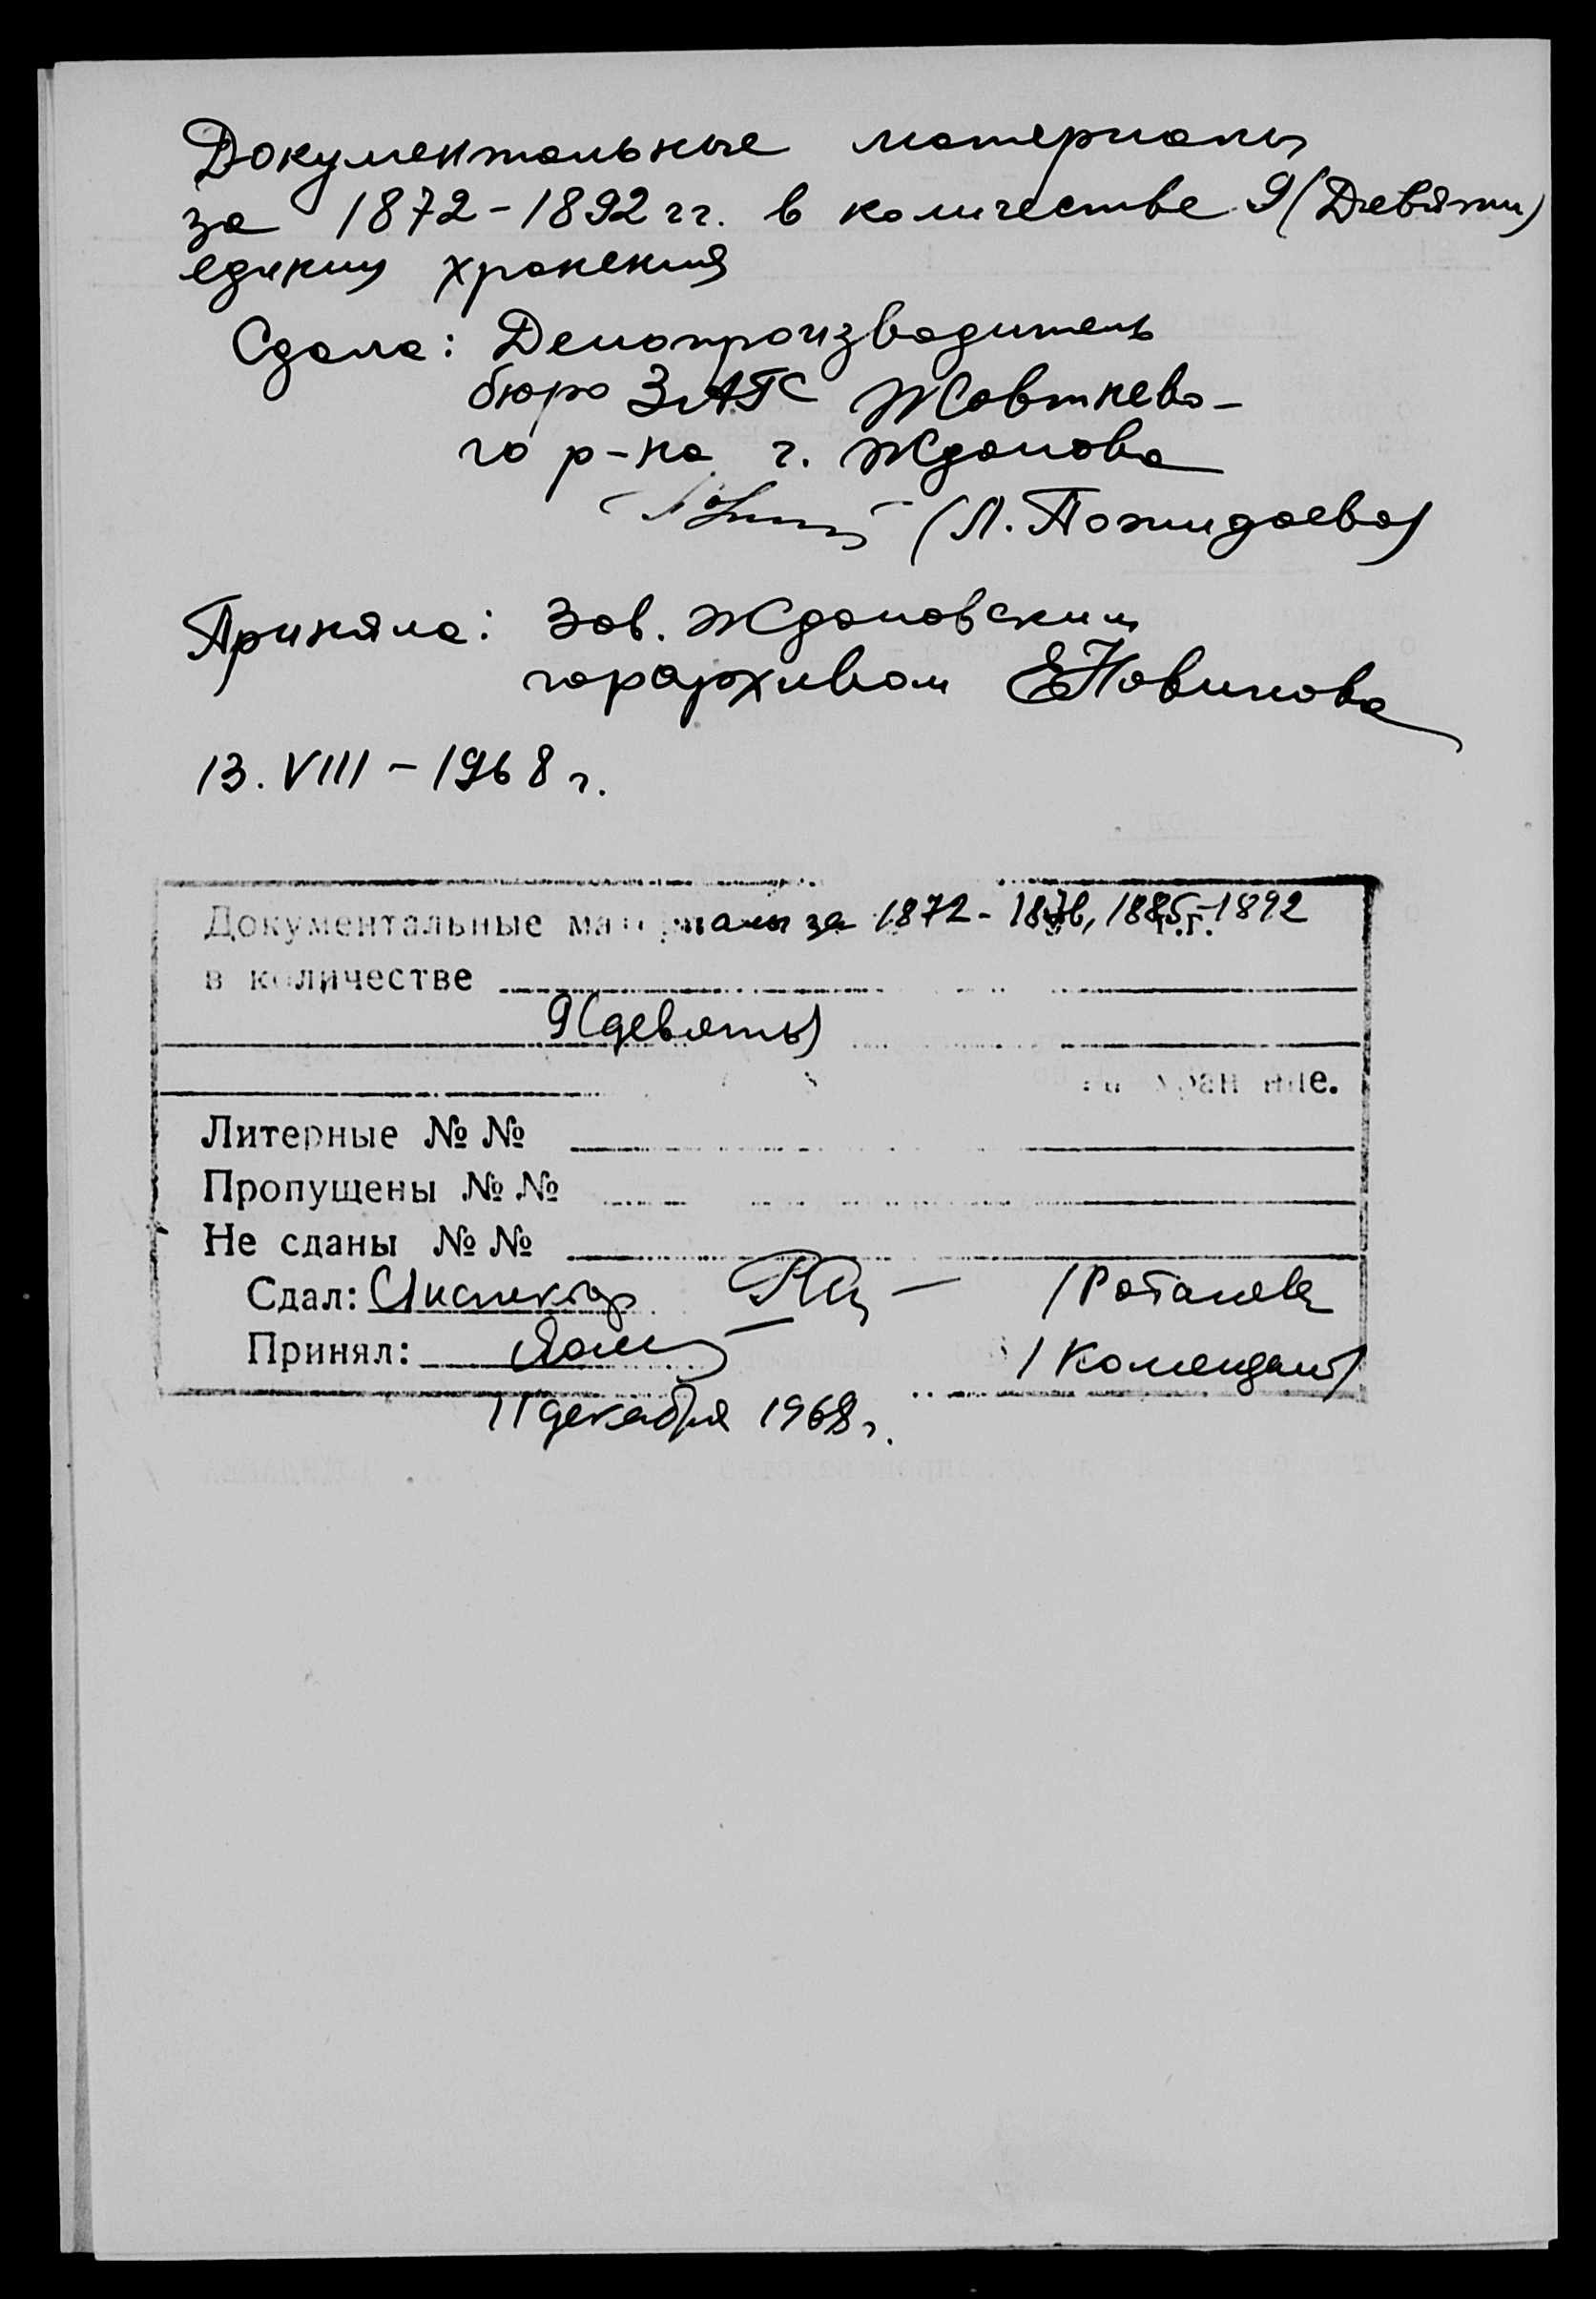 Документальные материалы
за 1872-1892 гг. в количестве 9 (Девяти)
единиц хранения
Сдала: Делопроизводитель
бюро ЗАГС Жовтнево-
го р-на г. Жданова
(Л. Пожидаева)
Приняла: Зав. Ждановским
горархивом ЕНовикова
13. VIII - 1968 г.
Документальные материалы за 1872 - 1876, 1885 г.г. - 1892
в количестве
9 (девять)
на хранение.
Литерные №№
Пропущены №№
Не сданы №№
Сдал: Инспектор /Ротанева
Принял: /Комендант/
11 декабря 1968 г.